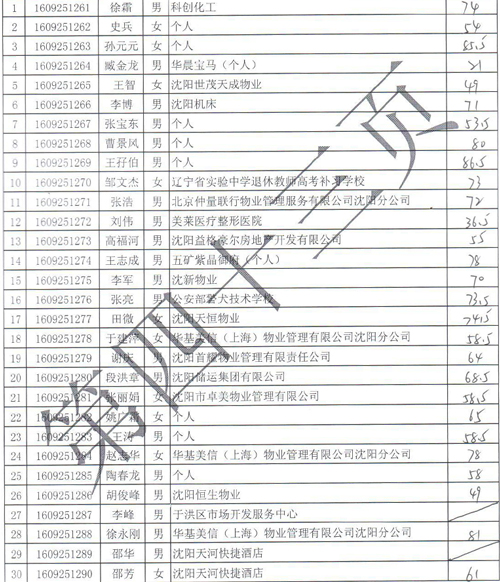 1 1609251261 徐霜 男 科创化工 74
2 1609251262 史兵 女 个人 54
3 1609251263 孙元元 女 个人 85.5
4 1609251264 臧金龙 男 华晨宝马（个人） 21
5 1609251265 王智 女 沈阳世茂天成物业 49
6 1609251266 李博 男 沈阳机床 71
7 1609251267 张宝东 男 个人 53.5
8 1609251268 曹景风 男 个人 80
9 1609251269 王孖伯 男 个人 86.5
10 1609251270 邹文杰 女 辽宁省实验中学退休教师高考补习学校 73
11 1609251271 张浩 男 北京仲量联行物业管理服务有限公司沈阳分公司 72
12 1609251272 刘伟 男 美莱医疗整形医院 36.5
13 1609251273 高福河 男 沈阳益格豪尔房地产开发有限公司 55
14 1609251274 王志成 男 五矿紫晶御府（个人） 78
15 1609251275 李军 男 沈新物业 70
16 1609251276 张亮 男 公安部警犬技术学校 73.5
17 1609251277 田微 女 沈阳天恒物业 74.5
18 1609251278 于建 女 华基美信（上海）物业管理有限公司沈阳分公司 58.5
19 1609251279 谢庆 男 沈阳首耀物业管理有限责任公司 64
20 1609251280 段洪章 男 沈阳储运集团有限公司 68.5
21 1609251281 张丽娟 女 沈阳市卓美物业管理有限公司 58.5
22 1609251282 姚广霜 女 个人 65
23 1609251283 王涛 男 个人 58.5
24 1609251284 赵志华 女 华基美信（上海）物业管理有限公司沈阳分公司 78
25 1609251285 陶春龙 男 个人 58
26 1609251286 胡俊峰 男 沈阳恒生物业 49
27 1609251287 李峰 男 于洪区市场开发服务中心
28 1609251288 徐永刚 男 华基美信（上海）物业管理有限公司沈阳分公司 81
29 1609251289 邵华 男 沈阳天河快捷酒店
30 1609251290 邵芳 女 沈阳天河快捷酒店 61
第四十三页